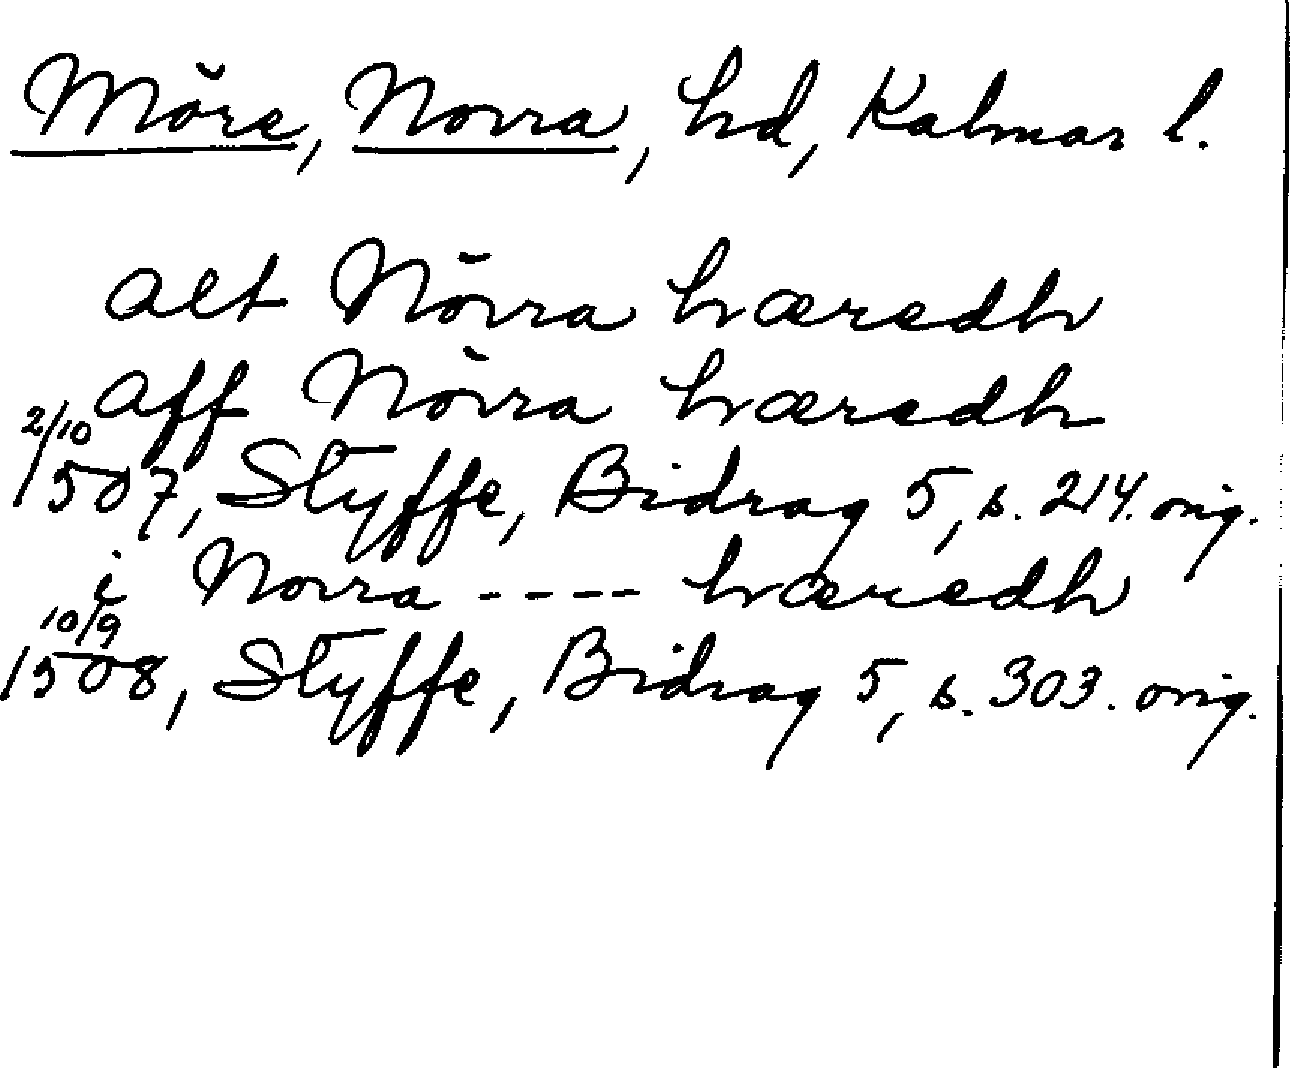 Möre, Norra, hd, Kalmar l.
alt Nörra hæredh
aff Nörra hæredh
2/10
1507, Styffe, Bidrag 5, s. 214. orig.
i Norra ---- hæredh
10/9
1508, Styffe, Bidrag 5, s. 303. orig.